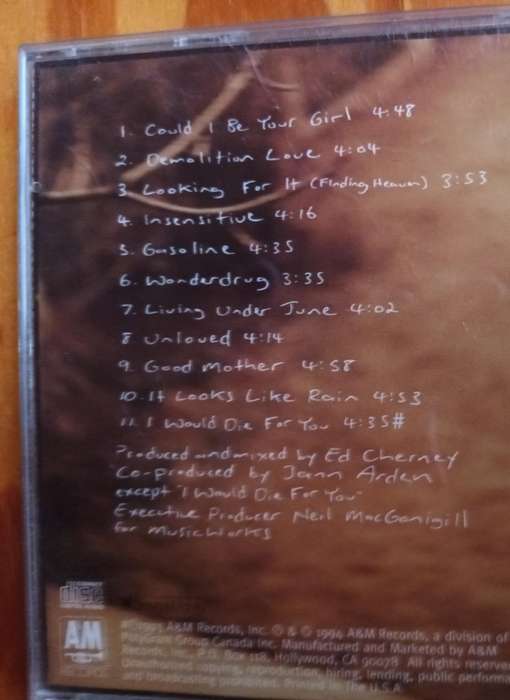 1. Could I Be Your Girl 4:48
2. Demolition Love 4:04
3. Looking For It (Finding Heaven) 3:53
4. Insensitive 4:16
5. Gasoline 4:35
6. Wonderdrug 3:35
7. Living Under June 4:02
8 Unloved 4:14
9. Good Mother 4:58
10. It Looks Like Rain 4:53
11. I Would Die For You 4:35#
Produced and mixed by Ed Cherney
Co-produced by Jann Arden
except "I Would Die For You"
Executive Producer Neil MacGonigill
for MusicWorks
disc
AM
1995 A&M Records, Inc. ℗ & © 1994 A&M Records, a division of
PolyGram Group Canada Inc. Manufactured and Marketed by A&M
Records, Inc., Box 118, Hollywood, CA 90078 All rights reserve
Unauthorized copying, reproduction, hiring, lending, public performa
and broadcasting prohibited. Printed in the U.S.A.